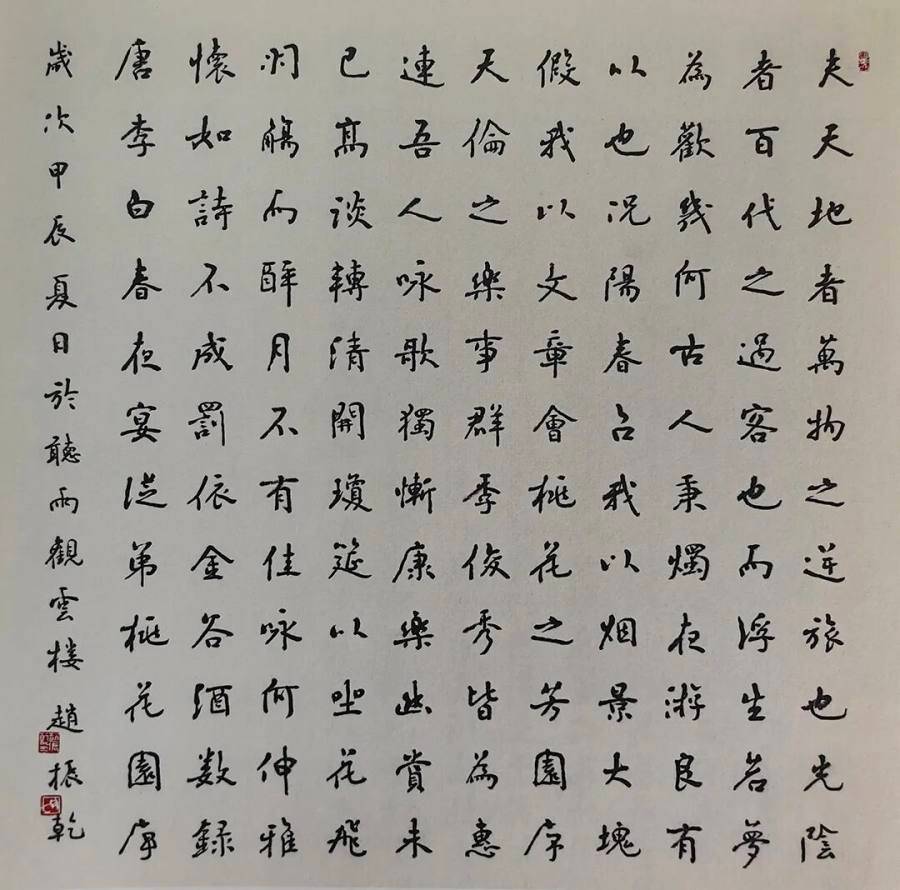 夫天地者萬物之逆旅也光陰
者百代之過客也而浮生若夢
為歡幾何古人秉燭夜游良有
以也况陽春召我以烟景大塊
假我以文章會桃花之芳園序
天倫之樂事群季俊秀皆為惠
連吾人咏歌獨慚康樂幽賞未
已高談轉清開瓊筵以坐花飛
羽觴而醉月不有佳咏何伸雅
懷如詩不成罰依金谷酒数録
唐李白春夜宴從弟桃花園序
歲次甲辰夏日於聽雨觀雲楼趙振乾